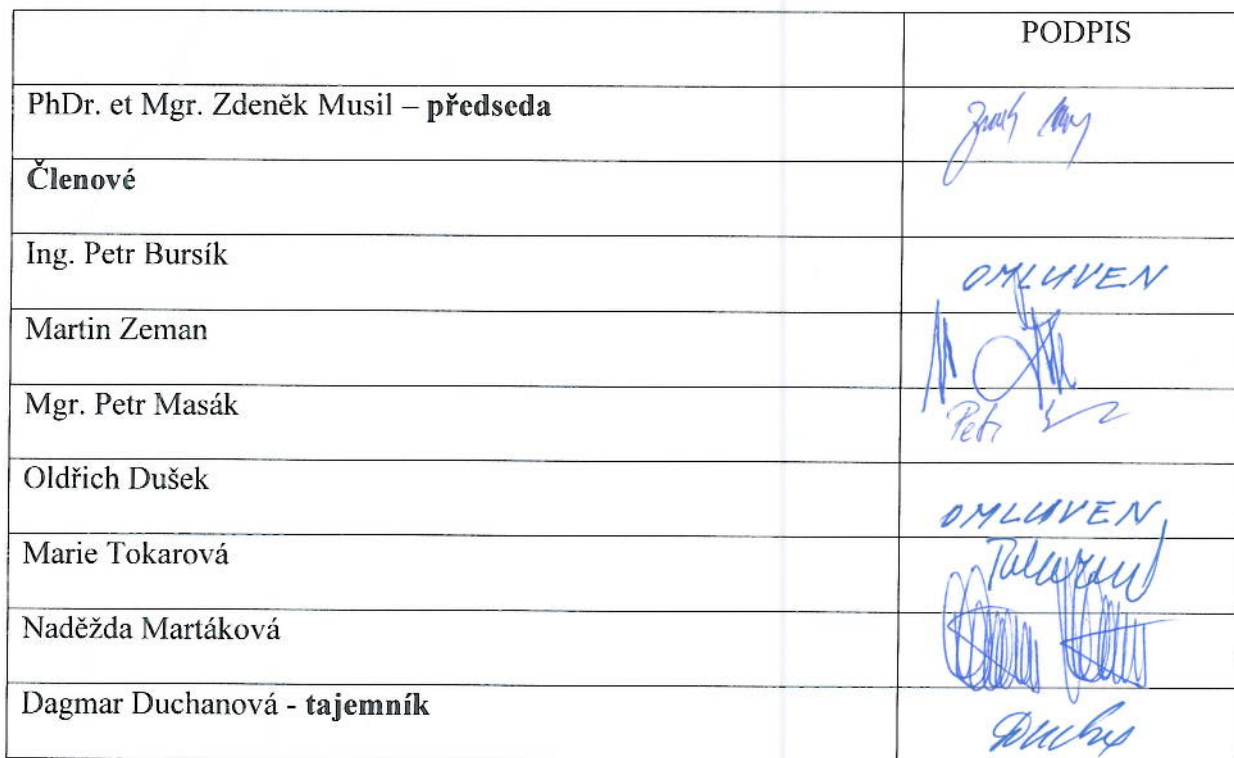 PODPIS
PhDr. et Mgr. Zdeněk Musil – předseda
Členové
Ing. Petr Bursík OMLUVEN
Martin Zeman
Mgr. Petr Masák Petr
Oldřich Dušek OMLUVEN
Marie Tokarová
Naděžda Martáková
Dagmar Duchanová - tajemník